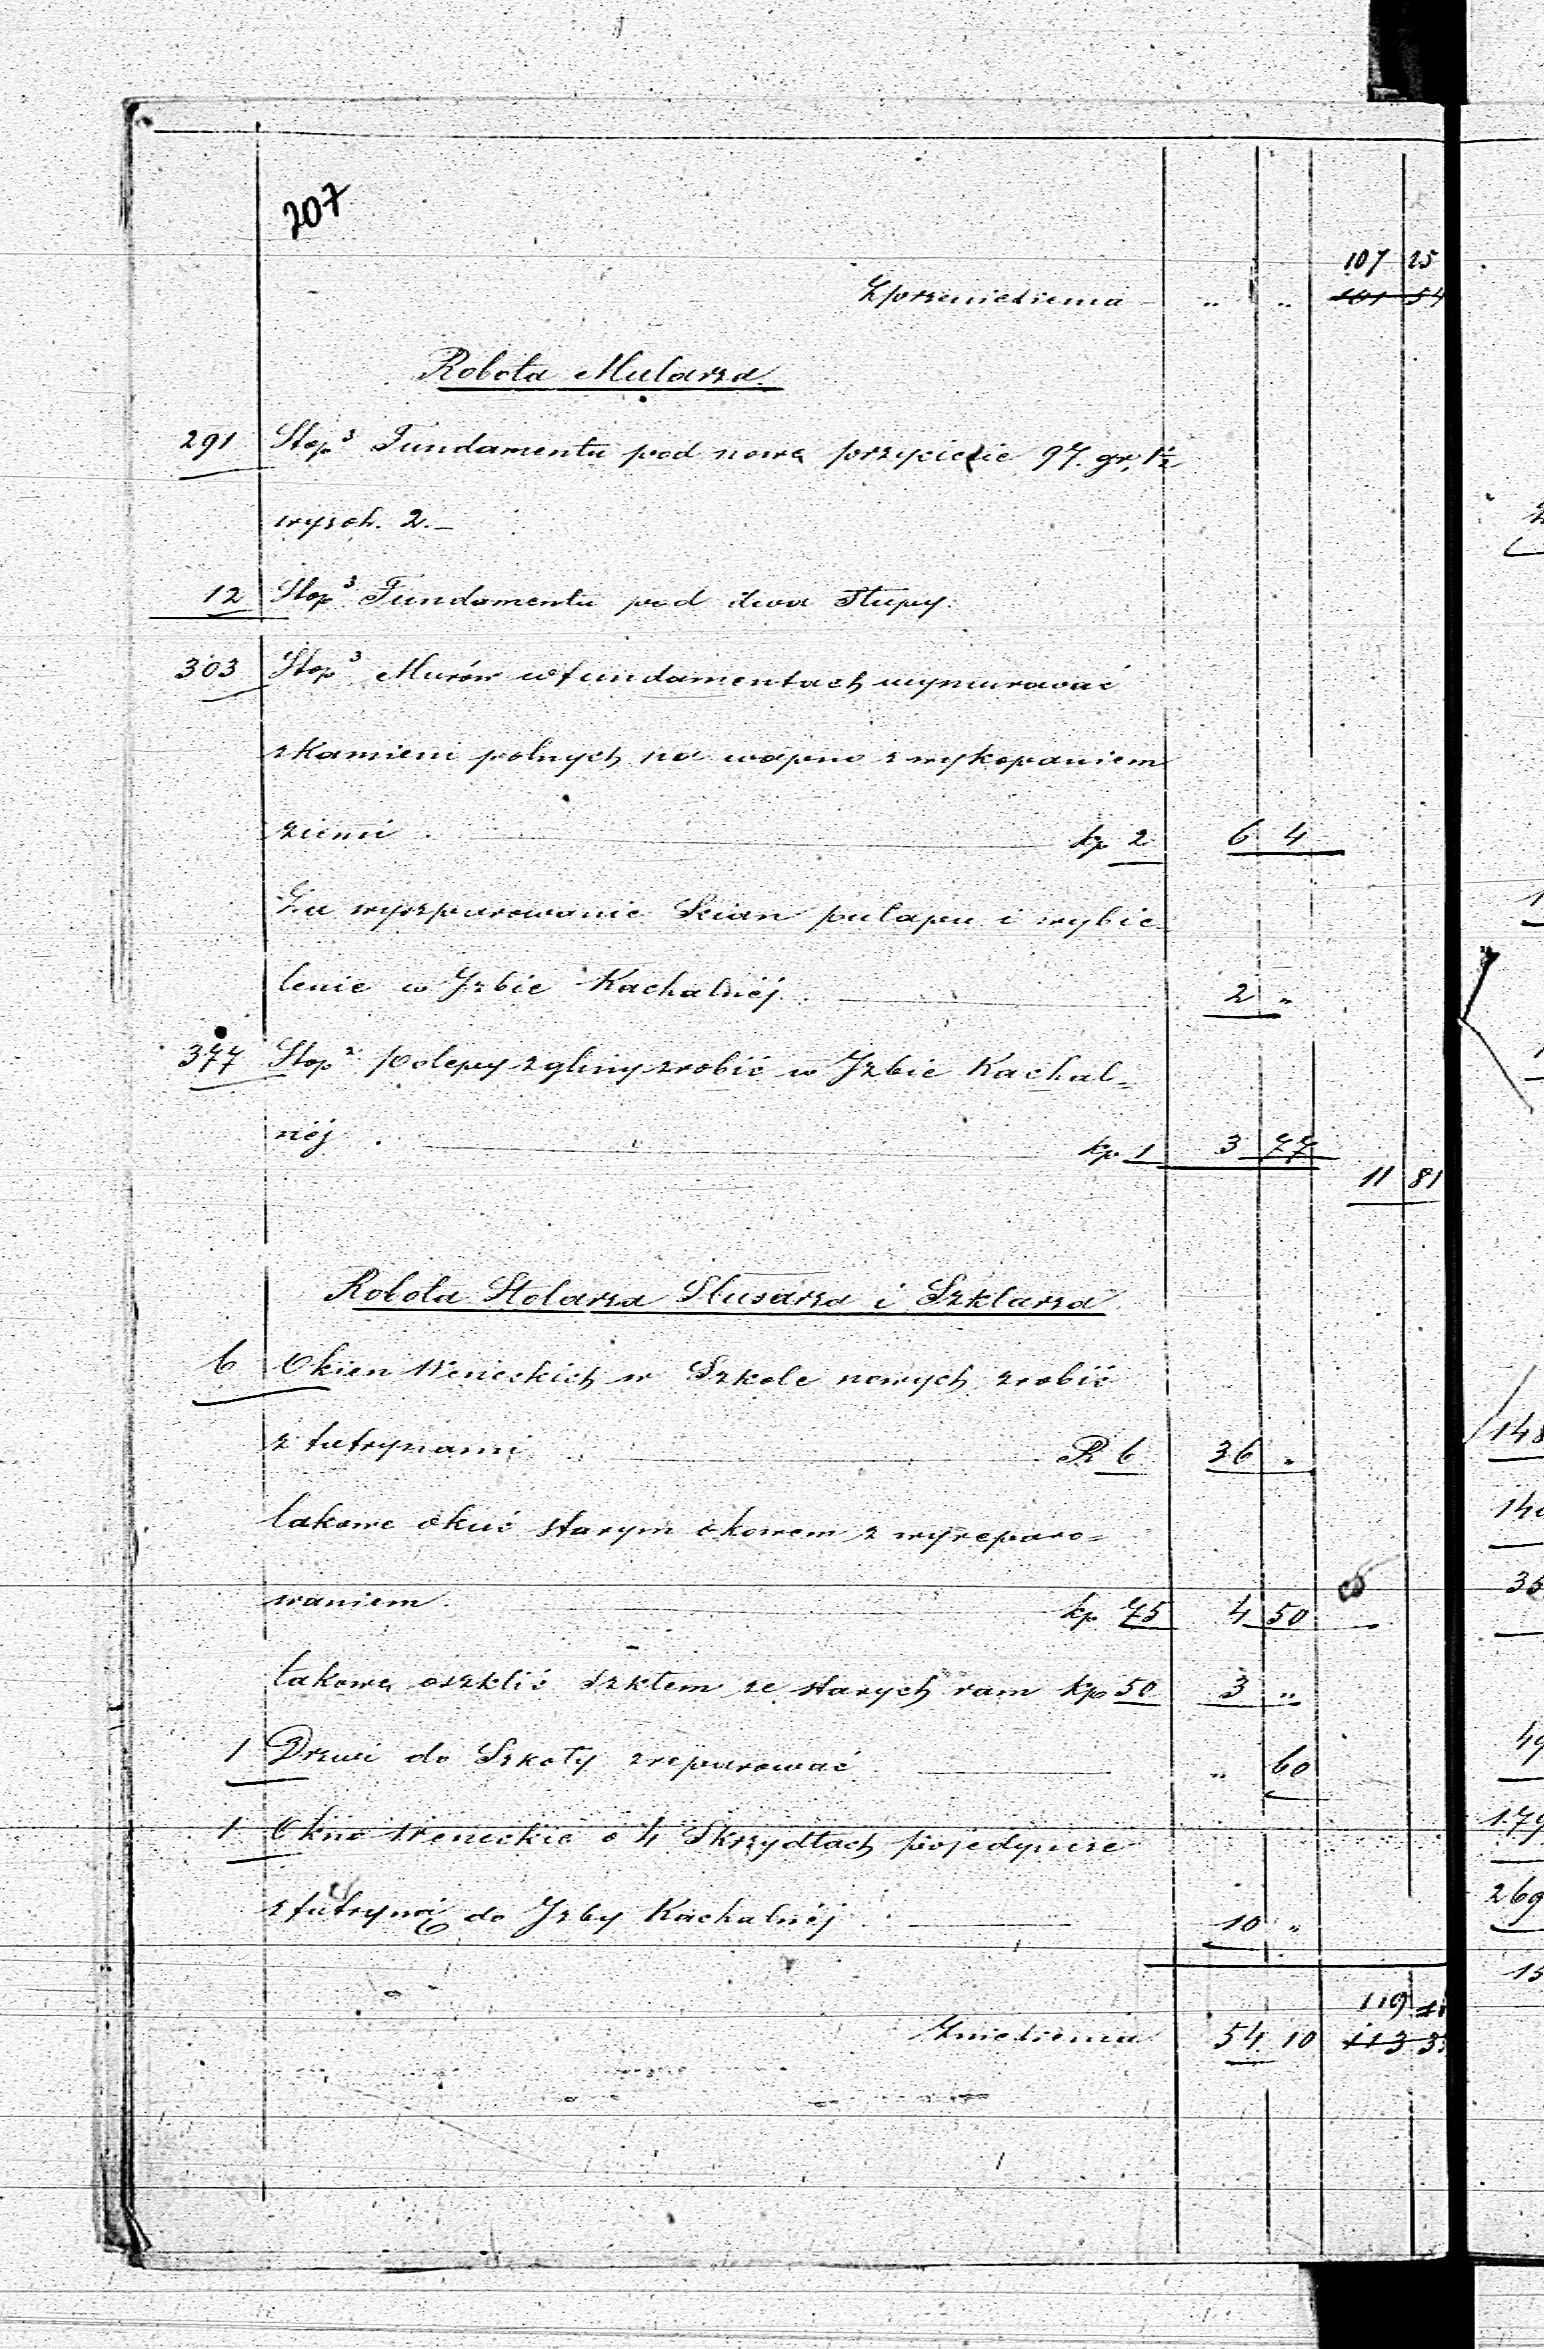 207
107 25
Zprzeniesienia „ „ 101 54
Robota Mularza
291 Stop³ Fundamentu pod nowe przyciesie 97. gr. 1½
wysok. 2.
12 Stop³ Fundamentu pod dwa Słupy.
303 Stop³ Murów w fundamentach wymurować
z kamieni polnych na wapno z wykopaniem
ziemi kp 2 6 4
Za wyszparowanie Scian pułapu i wybie-
lenie w Jzbie Kachalnéj 2 „
377 Stop² polepy z gliny zrobić w Jzbie Kachal-
néj kp. 1 3 77
11 81
Robota Stolarza Slusarza i Szklarza
6 Okien Weneckich w Szkole nowych zrobić
z futrynami R 6 36 „
takowe okuć starym okowem z wyreparo=
waniem kp 75 4 50
takowe oszklić szkłem ze starych ram kp 50 3 „
1 Drzwi do Szkoły zreparować „ 60
1 Okno Weneckie o 4 Skrzydłach pojedyncze
z futryną do Jzby Kachalnéj 10 „
119
Zniesienia 54 10 113
148
35
49
179
269
15